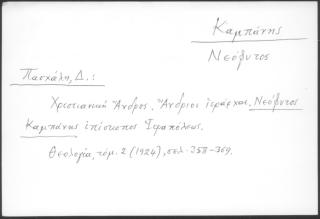 Καμπάνης
Νεόφυτος
Πασχάλη, Δ.:
Χριστιανικὴ Ἄνδρος. Ἄνδριοι ἱεράρχαι. Νεόφυτος
Καμπάνης ἐπίσκοπος Ἱεραπόλεως.
Θεολογία, τόμ. 2 (1924), σελ. 358-369.